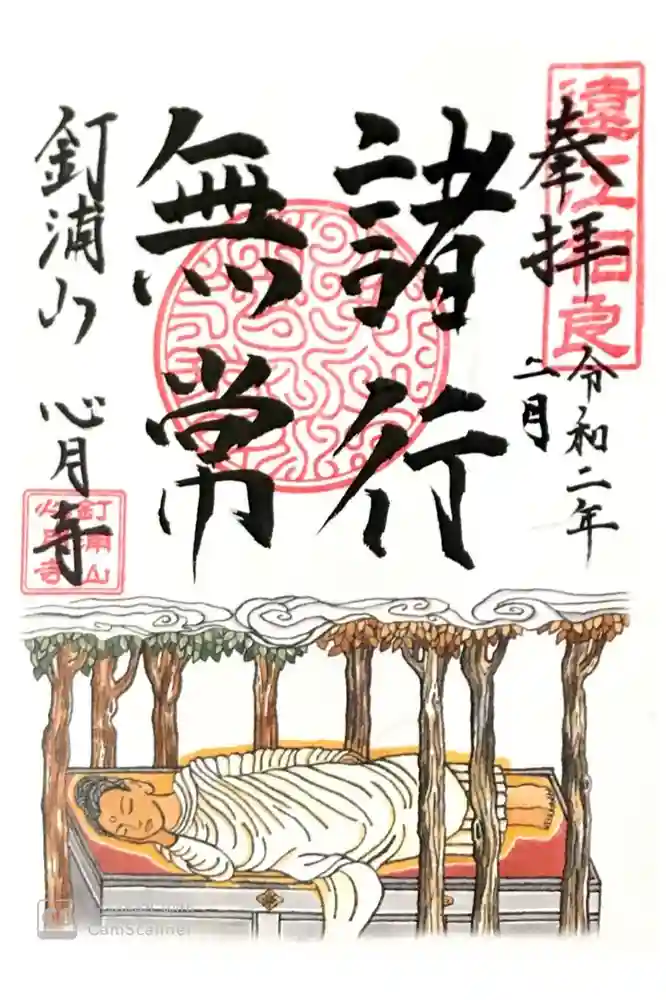 奉拝
遠江相良
令和二年
二月
諸行
無常
釘浦山 心月寺
釘浦山
心月寺
CamScanner